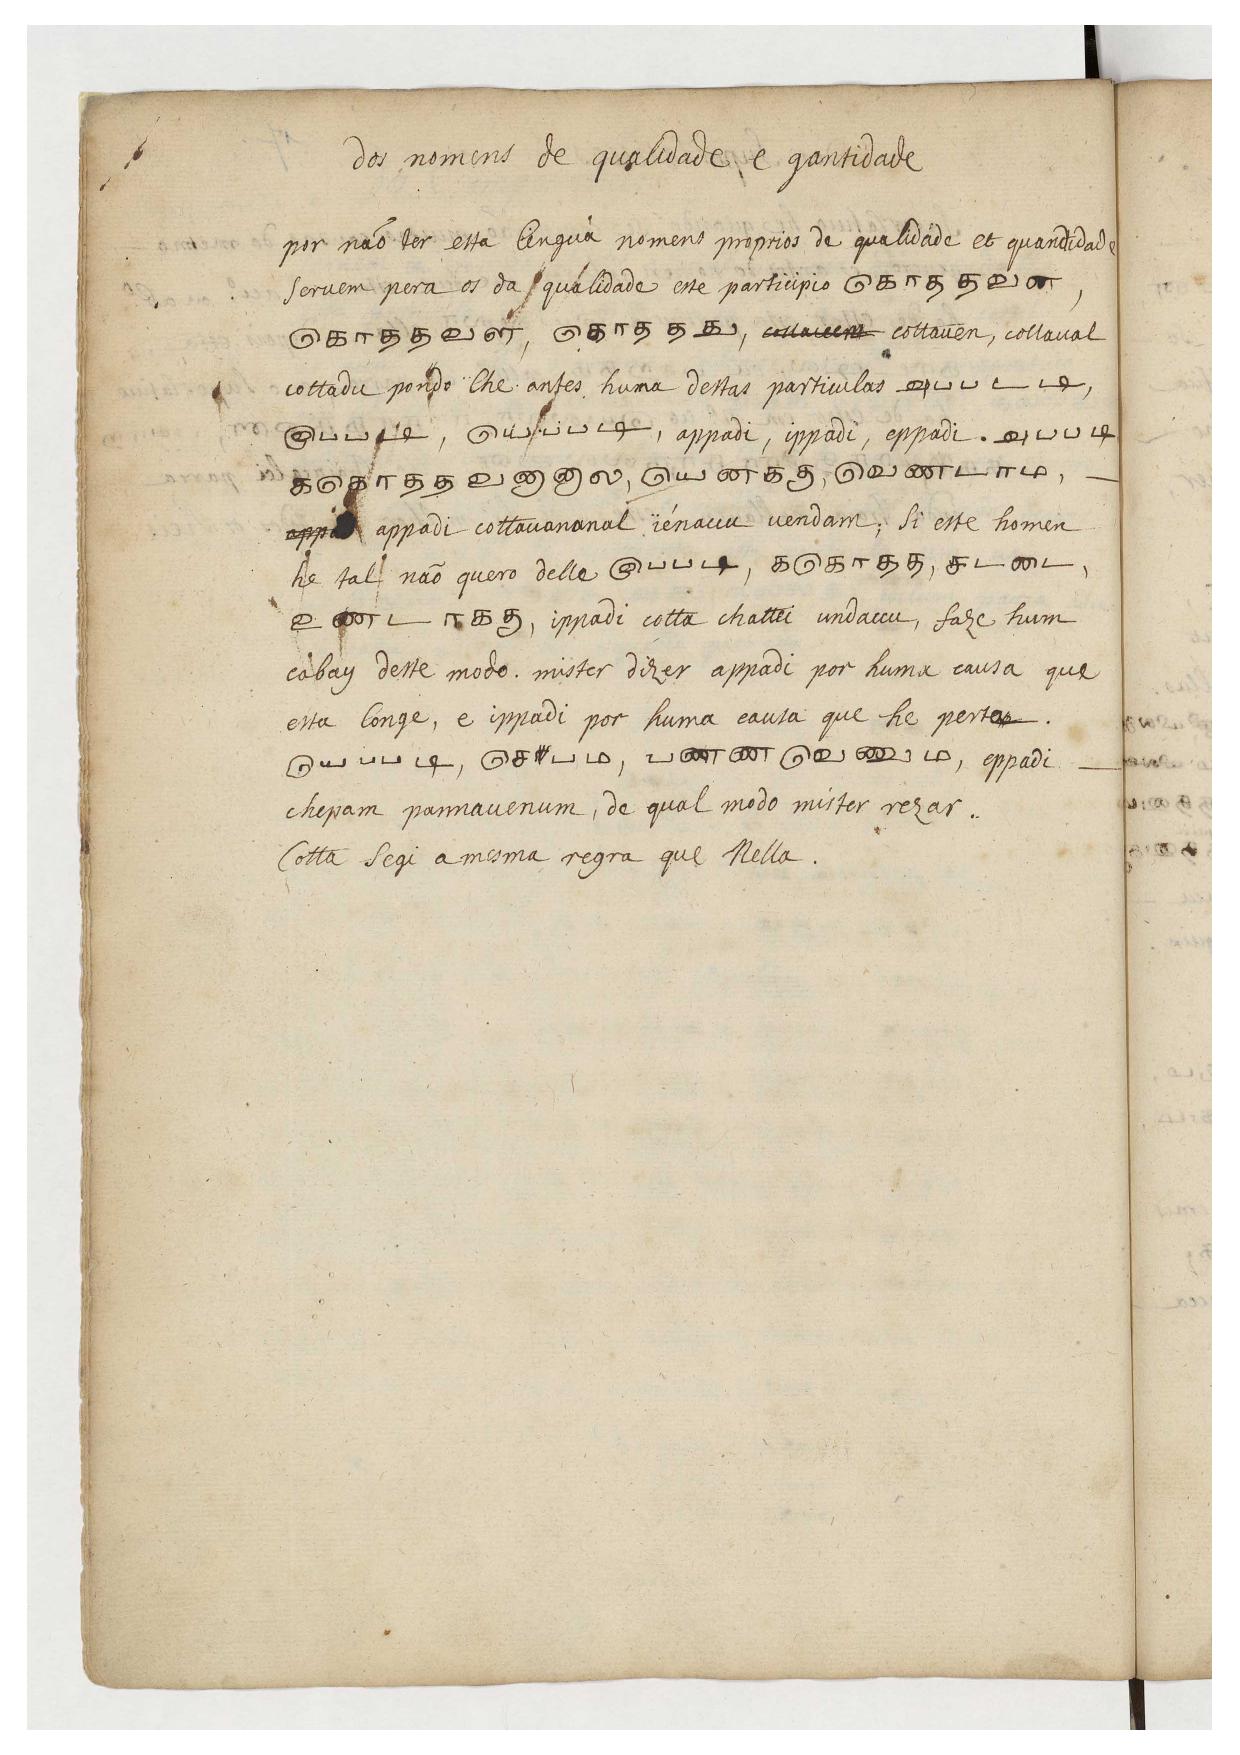 dos nomens de qualidade e qantidade
por não ter esta lingua nomens proprios de qualidade et quandidade
servem pera os da qualidade este participio கொததவன,
கொததவள, கொததது, cottauen, cottaual
cottadu pondo lhe antes huma destas particulas அபபடடி,
இபபடி, யெபபடி, appadi, ippadi, eppadi. அபபடி
ககொததவனானால, யெனககு, வெணடாம, —
appadi cottauananal ïénaccu uendam; si este homen
he tal não quero delle இபபடி, ககொதத, சடடை,
உணடாககு, ippadi cotta chattei undaccu, faze hum
cabay deste modo. mister dizer appadi por huma causa que
esta longe, e ippadi por huma causa que he perto.
யெபபடி, செபம, பணணவெணும, eppadi —
chepam pannauenum, de qual modo mister rezar..
Cotta segi a mesma regra que Nella.